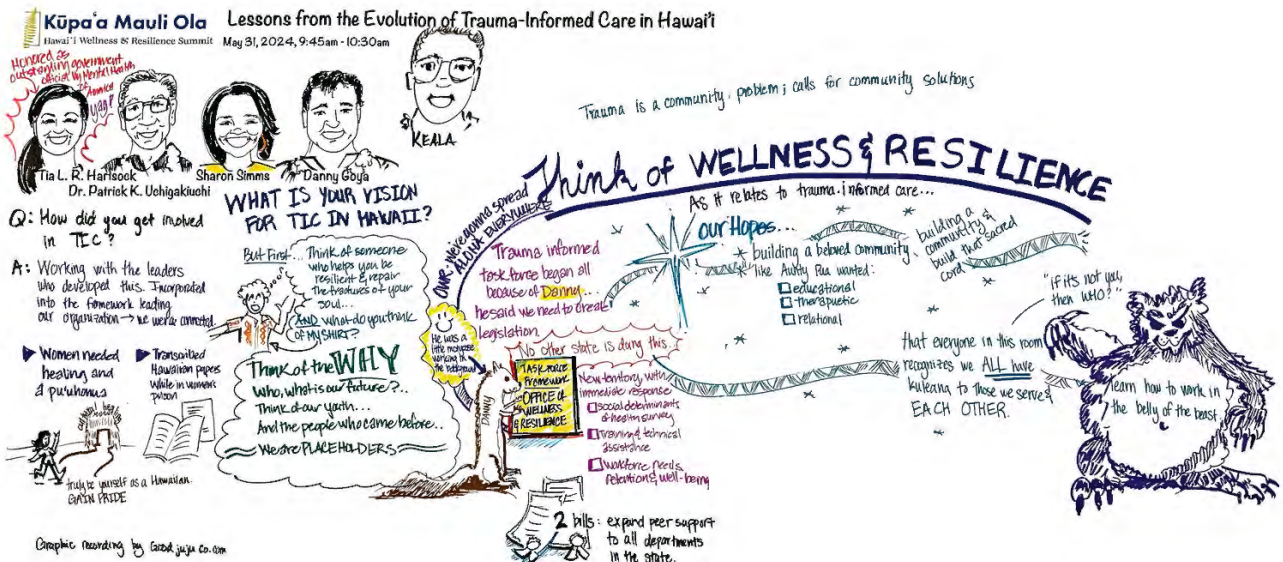 Kūpaʻa Mauli Ola
Hawaiʻi Wellness & Resilience Summit
Lessons from the Evolution of Trauma-Informed Care in Hawaiʻi
May 31, 2024, 9:45am - 10:30am
Honored as
outstanding government
official by Mental Health
of America
yay!
KEALA
Tia L. R. Harisook
Dr. Patrick K. Uchigakiuchi
Sharon Simms
Danny Goya
Q: How did you get involved
in TIC?
A: Working with the leaders
who developed this. Incorporated
into the framework leading
our organization → we were connected
Women needed
healing and
a pu'uhonua
Transcribed
Hawaiian papers
while in women's
prison
truly be yourself as a Hawaiian.
GAIN PRIDE
Graphic recording by Goodjujuco.com
WHAT IS YOUR VISION
FOR TIC IN HAWAII?
But First...
Think of someone
who helps you be
resilient & repair
the fractures of your
soul...
AND what do you think
of MY SHIRT?
Think of the WHY
Who, what is our future?..
Think of our youth...
And the people who came before..
We are PLACEHOLDERS
we're gonna spread
ALOHA EVERYWHERE
He was a
little mongoose
working in
the background
DANNY
Trauma informed
task force began all
because of Danny...
he said we need to create
legislation
No other state is doing this..
TASK FORCE
Framework
OFFICE of
WELLNESS
& RESILIENCE
New territory with
immediate response
social determinants
of health survey
Training & technical
assistance
Workforce needs,
retention & well-being
2 bills: expand peer support
to all departments
in the state.
Trauma is a community problem; calls for community solutions
Think of WELLNESS & RESILIENCE
As it relates to trauma-informed care...
our Hopes...
building a beloved community
like Aunty Pua wanted:
educational
therapuetic
relational
building a
community &
build that sacred
cord
that everyone in this room
recognizes we ALL have
kuleana to those we serve &
EACH OTHER.
"if it's not you,
then WHO?"
learn how to work in
the belly of the beast